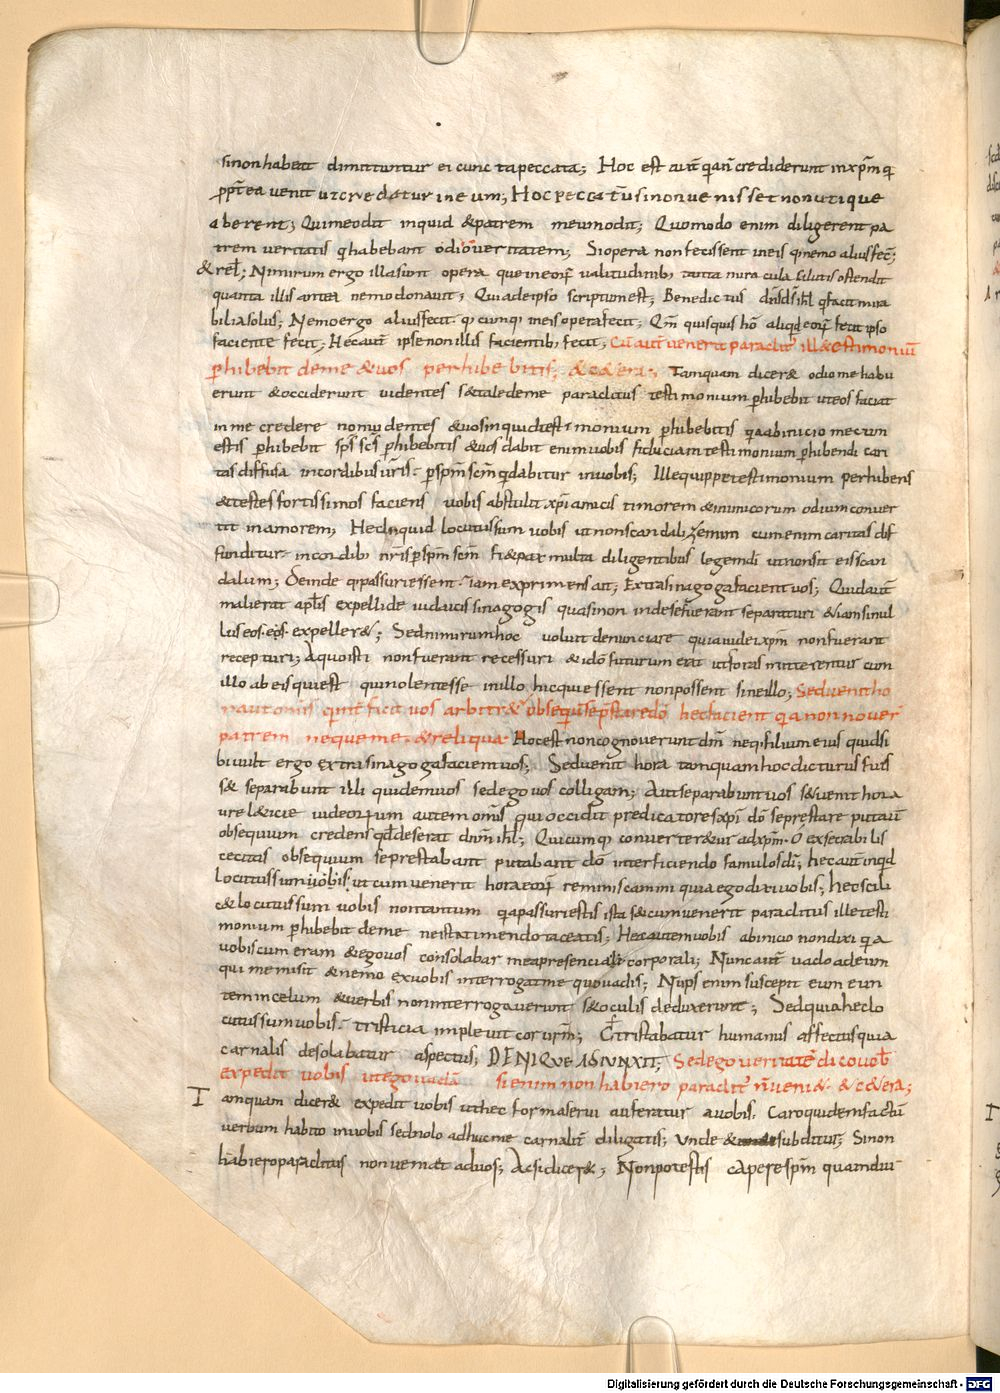 sinonhabeat dimittuntur ei cunc tapeccata; Hoc est aut̄ q̄ian̄ crediderunt inxp̄m q̄
ꝓpt̄ea venit utcredatur ineum; Hocpeccatū sinonvenissetnonutique
aberent; Quimeodit inquid &patrem meumodit; Quomodo enim diligerent pa
trem veritatis q̄habebant odio ueritatem; Siopera nonfecissent ineis q̄nemo aliusfec̄;
&rel̄; Nimirum ergo illasunt opera
quanta illis antea nemodonauit; Quiadeipso scriptumest; Benedictus dn̄sd̄sisrl̄ q̄facit mira
biliasolus; Nemoergo aliusfecit qu̧cumq; ineisoperafecit; Qm̄ quisquis hō aliqd̄eorū fecit ipso
faciente fecit; Hęcaut̄ ipsenonillis facientib; fecit; Cū aut̄ venerit paraclit᾽ ill&estimoniū
ꝑhibebit deme &uos perhibebitis; &c&era; Tamquam dicer& odiomehabu
erunt &occiderunt uidentes s&taledeme paraclitus testimonium ꝑhibebit uteos faciat
inme credere nonuidentes &uosinquid testimonium ꝑhibebitis quaabinicio mecum
estis ꝑhibebit sp̄s sc̄s ꝑhibebitis &uos dabit enimuobis fiduciam testimonium ꝑhibendi cari
tas diffusa incordibus ur̄is ꝑsp̄m sc̄m q̄dabitur inuobis; Illequippetestimonium perhibens
&testes fortissimos faciens uobis abstulit xp̄iamicis timorem &inimicorum odiumconuer
tit inamorem; Hec Inquid locutussum uobis utnonscandalizemini cumenim caritas dif
funditur incordib; nr̄is ꝑsp̄m sc̄m fi&pax multa diligentibus legemdī utnonsit eisscan
dalum; Deinde q̄passuriessent iam exprimens ait; Extrasinagogafacient uos; Quidaut̄
malierat apl̄is expellide iudaicissinagogis quasinon indesefuerant separaturi &iamsinul
luseos expeller&; Sednimirumhoc uoluit denunciare quiaiudeixp̄m nonfuerant
recepturi; Aquoisti nonfuerant recessuri &idō futurum erat utforas mitterentur cum
illo abeisquiest quinolentesse inillo hicquiessent nonpossent sineillo; Sedvenitho
rautomīs quint̄ficit uos arbitr&ur obsequiūseꝓstaredō hecfacient q̄anonnouer̄
patrem nequeme &reliqua Hocest noncognouerunt dm̄ neq; filiumeius quidsi
biuult ergo extrasinagogafacientuos; Seduenit hora tamquamhocdicturus fuis
s& separabunt illi quidemuos sedegouos colligam; Autseparabuntuos s&uenit hora
autem omīs quioccidit predicatoresxp̄i dō seprestare putaū
obsequium credens qd̄deserat dn̄m ihl̄; Quicumq; conuerter&ur adxp̄m; O exsecrabilis
cecitas obsequium seprestabant putabant dō interficiendo famulosdī; hecaut inqd̄
locutussumuobis utcumvenerit horaeorū reminiscamini quiaegodixiuobis; hec scili
c& locutussum uobis nontantum q̄apassuriestis ista s&cumvenerit paraclitus illetesti
monium ꝑhibebit deme neistatimendo taceatis; Hecautemuobis abinicio nondixi q̄a
uobiscum eram &egouos consolabar meapresenciali corporali; Nuncaut̄ vado adeum
qui memisit &nemo exuobis interrogatme quouadis; Nūps enim suscepit eum eun
tem incelum &uerbis noninterrogaverunt s&oculis deduxerunt; Sedquiaheclo
cutussumuobis tristicia impleuit cor urm̄; C̄tristabatur humanus affectusquia
carnalis desolabatur aspectus; DENIQVE ASIVNXIT; Sedego veritatē dicouob̄
expedit uobis utegouadā sienim nonhabiero paraclit᾽ n̄ueni& &c&era;
Tamquam dicer& expedit uobis uthec formaservi auferatur auobis. Caroquidemfactū
uerbum habito inuobis sednolo adhucme carnalit̄ diligatis; Unde & subditur; Sinon
habieroparaclitus nonveniat aduos; Acsidicer&; Nonpotestis caperesp̄m quamdiu